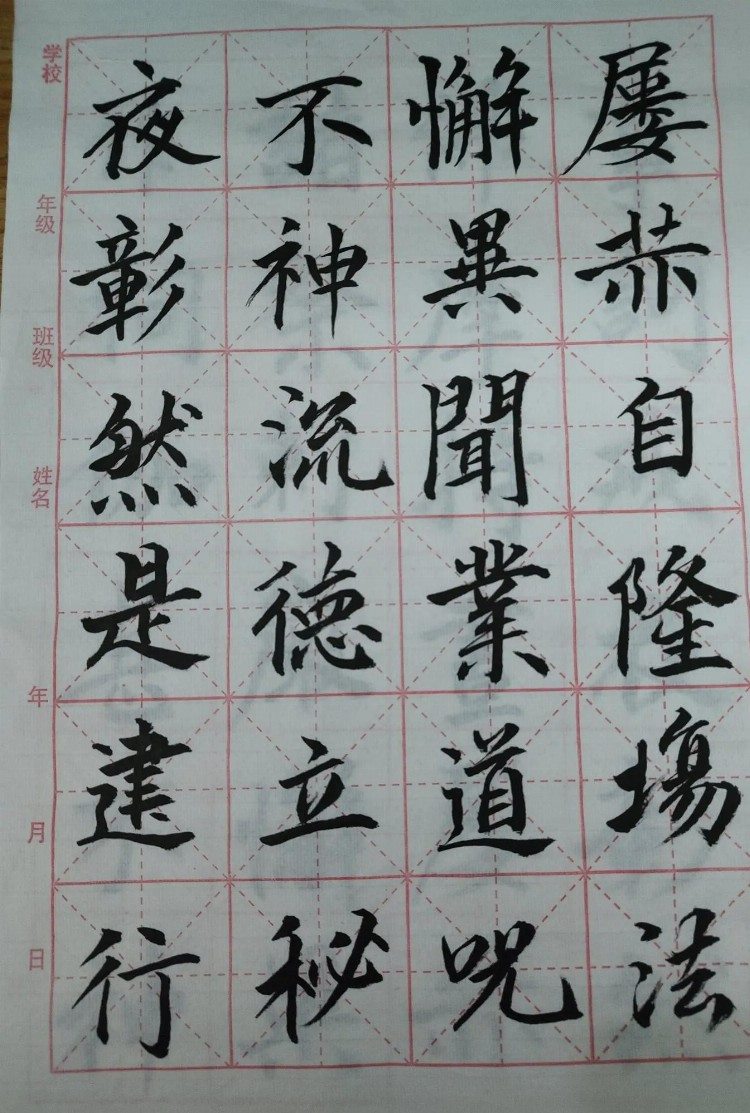 夜不懈屢
彰神異赤
然流聞自
是德業隆
建立道場
行秘咒法
学校
年级
班级
姓名
年
月
日